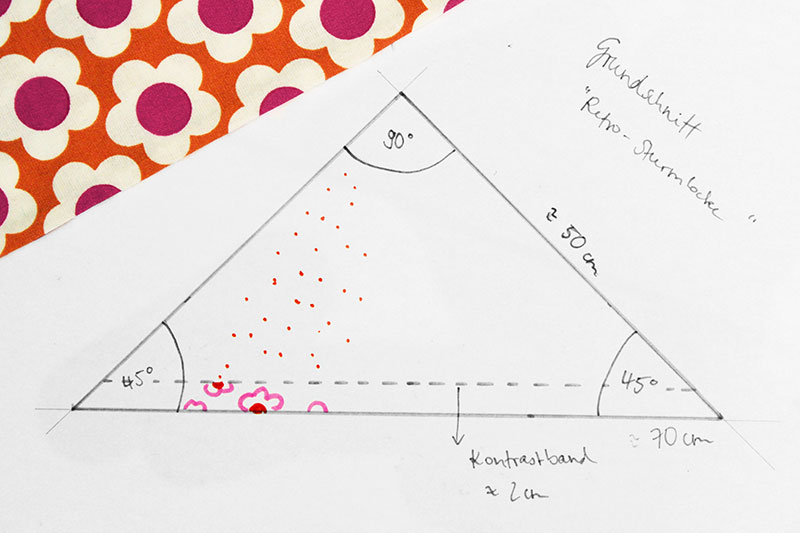 Grundschnitt
"Retro-Sturmlocke"
90°
≈ 50 cm
45°
45°
≈ 70 cm
Kontrastband
≈ 2 cm